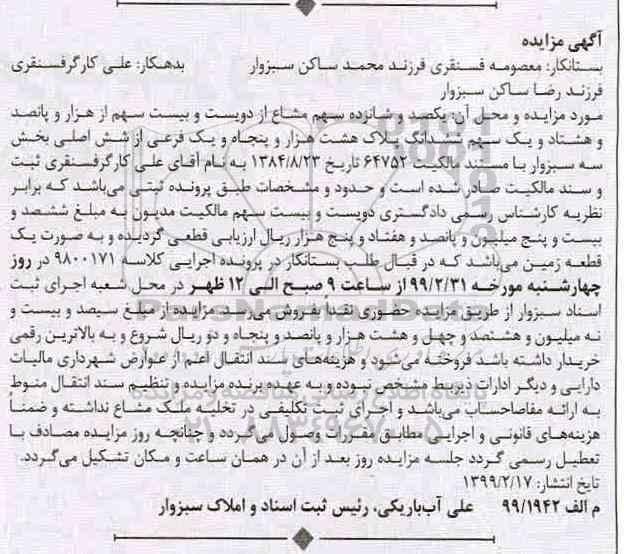 آگهی مزایده
بستانکار: معصومه فسنقری فرزند محمد ساکن سبزوار بدهکار: علی کارگرفسنقری
فرزند رضا ساکن سبزوار
مورد مزایده و محل آن: یکصد و شانزده سهم مشاع از دویست و بیست سهم از هزار و پانصد
و هشتاد و یک سهم ششدانگ پلاک هشت هزار و پنجاه و یک فرعی از شش اصلی بخش
سه سبزوار با مستند مالکیت ۶۴۷۵۲ تاریخ ۱۳۸۴/۸/۲۳ به نام آقای علی کارگرفسنقری ثبت
و سند مالکیت صادر شده است و حدود و مشخصات طبق پرونده ثبتی می‌باشد که برابر
نظریه کارشناس رسمی دادگستری دویست و بیست سهم مالکیت مدیون به مبلغ ششصد و
بیست و پنج میلیون و پانصد و هفتاد و پنج هزار ریال ارزیابی قطعی گردیده و به صورت یک
قطعه زمین می‌باشد که در قبال طلب بستانکار در پرونده اجرایی کلاسه ۹۸۰۰۱۷۱ در روز
چهارشنبه مورخه ۹۹/۲/۳۱ از ساعت ۹ صبح الی ۱۲ ظهر در محل شعبه اجرای ثبت
اسناد سبزوار از طریق مزایده حضوری نقداً بفروش می‌رسد. مزایده از مبلغ سیصد و بیست و
نه میلیون و هشتصد و چهل و هشت هزار و پانصد و پنجاه و دو ریال شروع و به بالاترین رقمی
خریدار داشته باشد فروخته می‌شود و هزینه‌های سند انتقال اعم از عوارض شهرداری مالیات
دارایی و دیگر ادارات ذیربط مشخص نبوده و به عهده برنده مزایده و تنظیم سند انتقال منوط
به ارائه مفاصاحساب می‌باشد و اجرای ثبت تکلیفی در تخلیه ملک مشاع نداشته و ضمناً
هزینه‌های قانونی و اجرایی مطابق مقررات وصول می‌گردد و چنانچه روز مزایده مصادف با
تعطیل رسمی گردد جلسه مزایده روز بعد از آن در همان ساعت و مکان تشکیل می‌گردد.
تایخ انتشار: ۱۳۹۹/۲/۱۷
م الف ۹۹/۱۹۴۲ علی آب‌باریکی، رئیس ثبت اسناد و املاک سبزوار